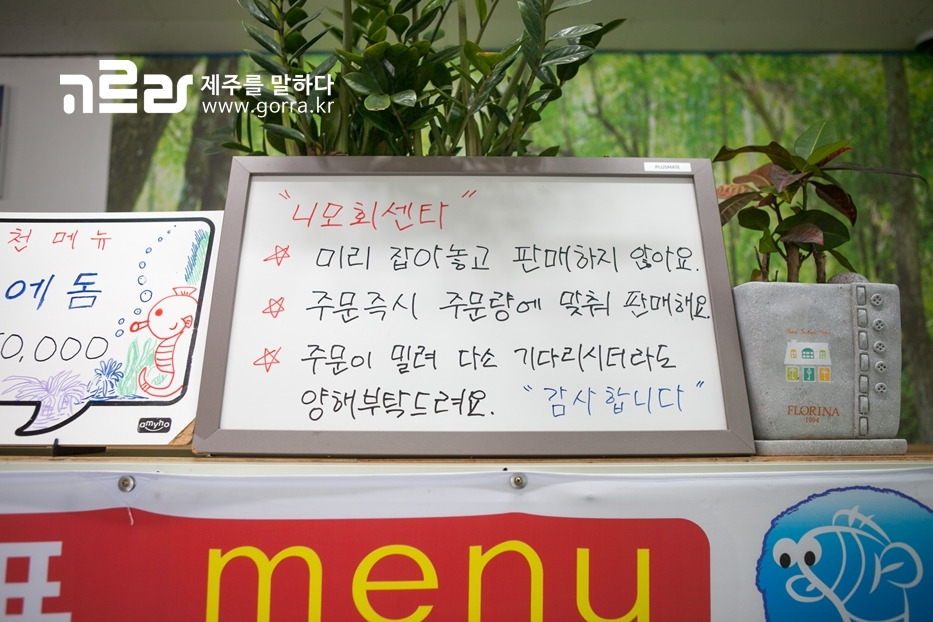 고르라 제주를 말하다
www.gorra.kr
PLUSMATE
"니모회센타"
☆ 미리 잡아놓고 판매하지 않아요.
☆ 주문즉시 주문량에 맞춰 판매해요
☆ 주문이 밀려 다소 기다리시더라도
양해부탁드려요. "감사합니다"
천 메뉴
에돔
0,000
amyho
FLORINA
1994
표 menu